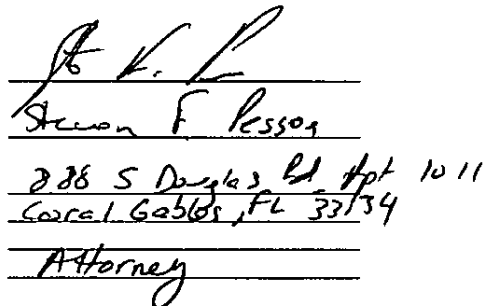 Steven F Pessoa
888 S Douglas Rd Apt 1011
Coral Gables, FL 33134
Attorney